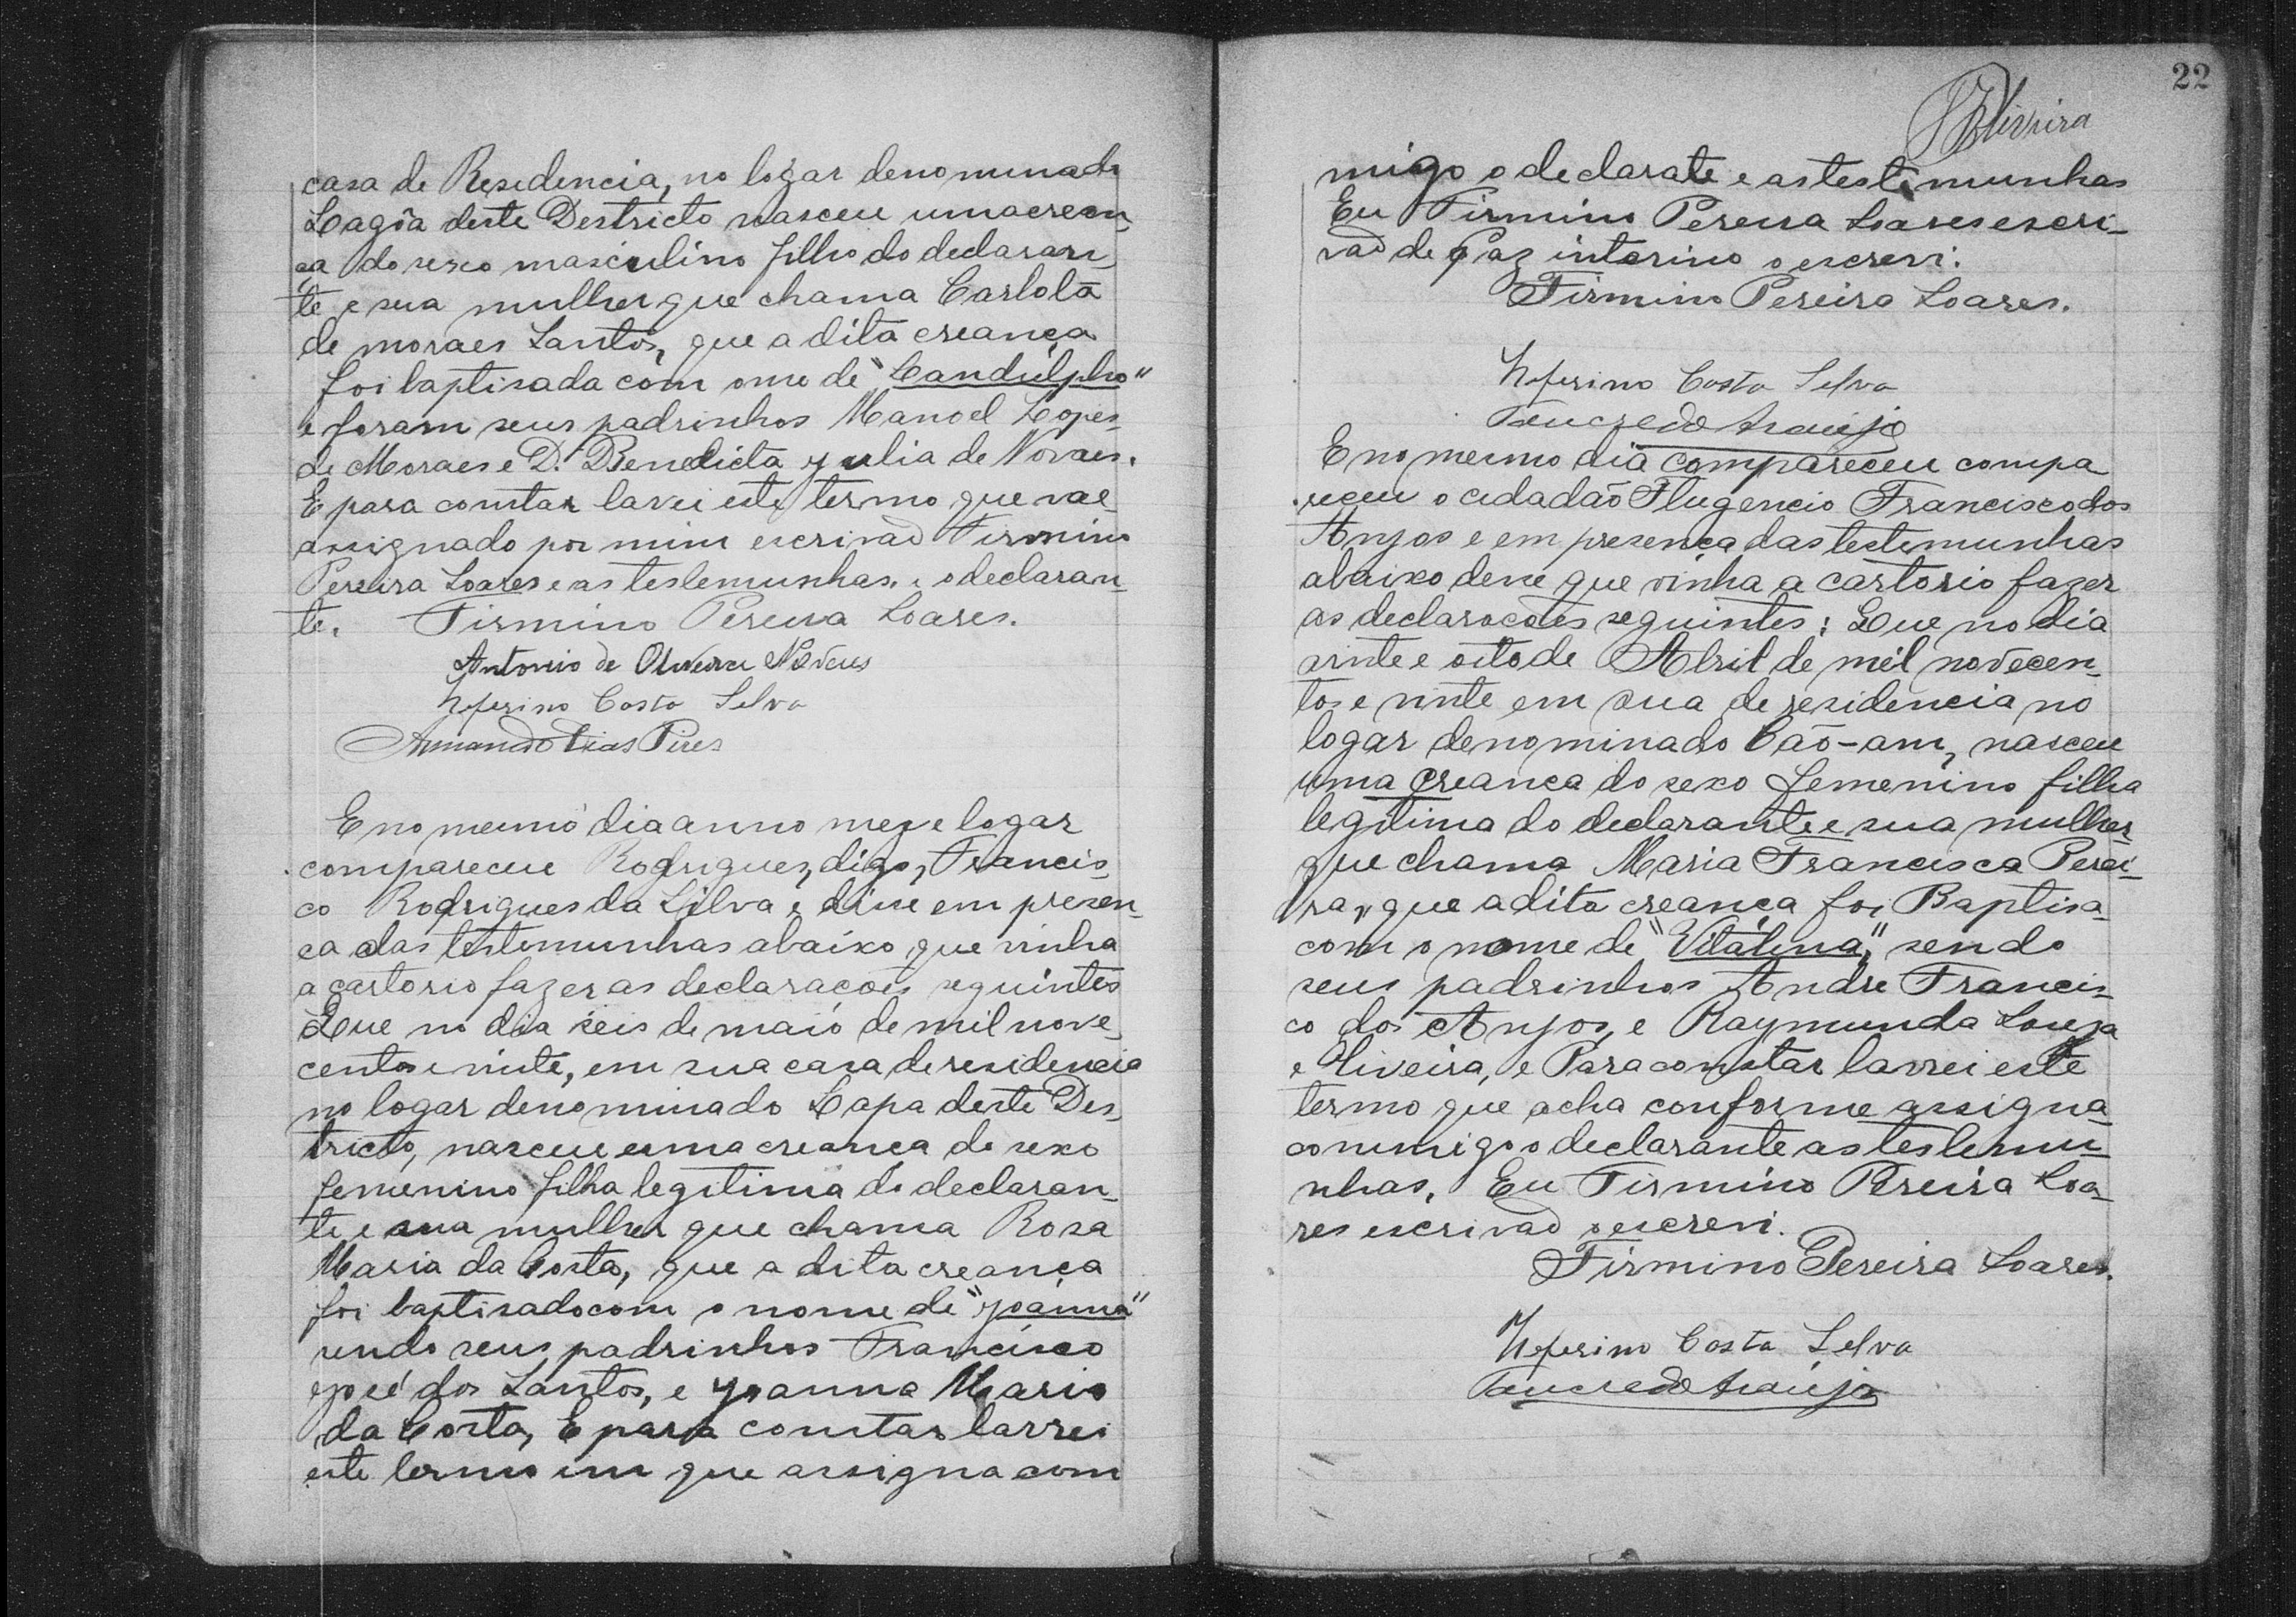 casa de Resedencia, no logar denominado
Lagôa deste Destricto nasceu uma crean
ça do sexo masculino filho do declaran
te e sua mulher que chama Carlota
de moraes Santos, que a dita creança
foi baptisada com ome de "Candulpho"
e foram seus padrinhos Manoel Lopes
de Moraes e D. Benedicta Julia de Novaes.
E para constar lavrei este termo que vae
assignado por mim escrivaõ Firmino
Pereira Soares e as testemunhas. e o declaran
te. Firmino Pereira Soares.
Antonio de Oliveira Novaes
Zeferino Costa Selva
Armando Dias Pires
E no mesmo dia anno mez e logar
compareceu Rodrigues, digo, Francis
co Rodrigues da Silva e disse em presen
ca das testemunhas abaixo que vinha
a cartorio fazer as declaracoes seguintes
Que no dia seis de maio de mil nove
centos e vinte, em sua casa de residencia
no logar denominado Lapa deste Des
tricto, nasceu uma creança do sexo
femenino filha legitima do declaran
te e sua mulher que chama Rosa
Maria da Costa, que a dita creança
foi baptisado com o nome de "Joanna"
sendo seus padrinhos Francisco
José dos Santos, e Joanna Maria
da Costa, E para constar lavrei
este termo em que assigna com
22
Oliveira
migo o declarate e as testemunhas
Eu Firmino Pereira Soares escri-
vaõ de Paz interino o escrevi.
Firmino Pereira Soares.
Zeferino Costa Selva
Tancredo Araujo
E no mesmo dia compareceu compa
receu o cidadaõ Flugencio Francisco dos
Anjos e em presença das testemunhas
abaixo disse que vinha a cartorio fazer
as declaracoes seguintes: Que no dia
vinte e oito de Abril de mil novecen
tos e vinte em sua de residencia no
logar denominado Cão-am, nasceu
uma creança do sexo femenino filha
legitima do declarante e sua mulher
que chama Maria Francisca Perei-
ra, que a dita creança foi Baptisa
com o nome de "Vitalina," sendo
seus padrinhos Andre Francis
co dos Anjos, e Raymunda Souza
e Oliveira, e Para constar lavrei este
termo que acha conforme assigna
commigo o declarante as testemu
nhas. Eu Firmino Pereira Soa
res escrivaõ o escrevi.
Firmino Pereira Soares.
Zeferino Costa Selva
Tancredo Araujo